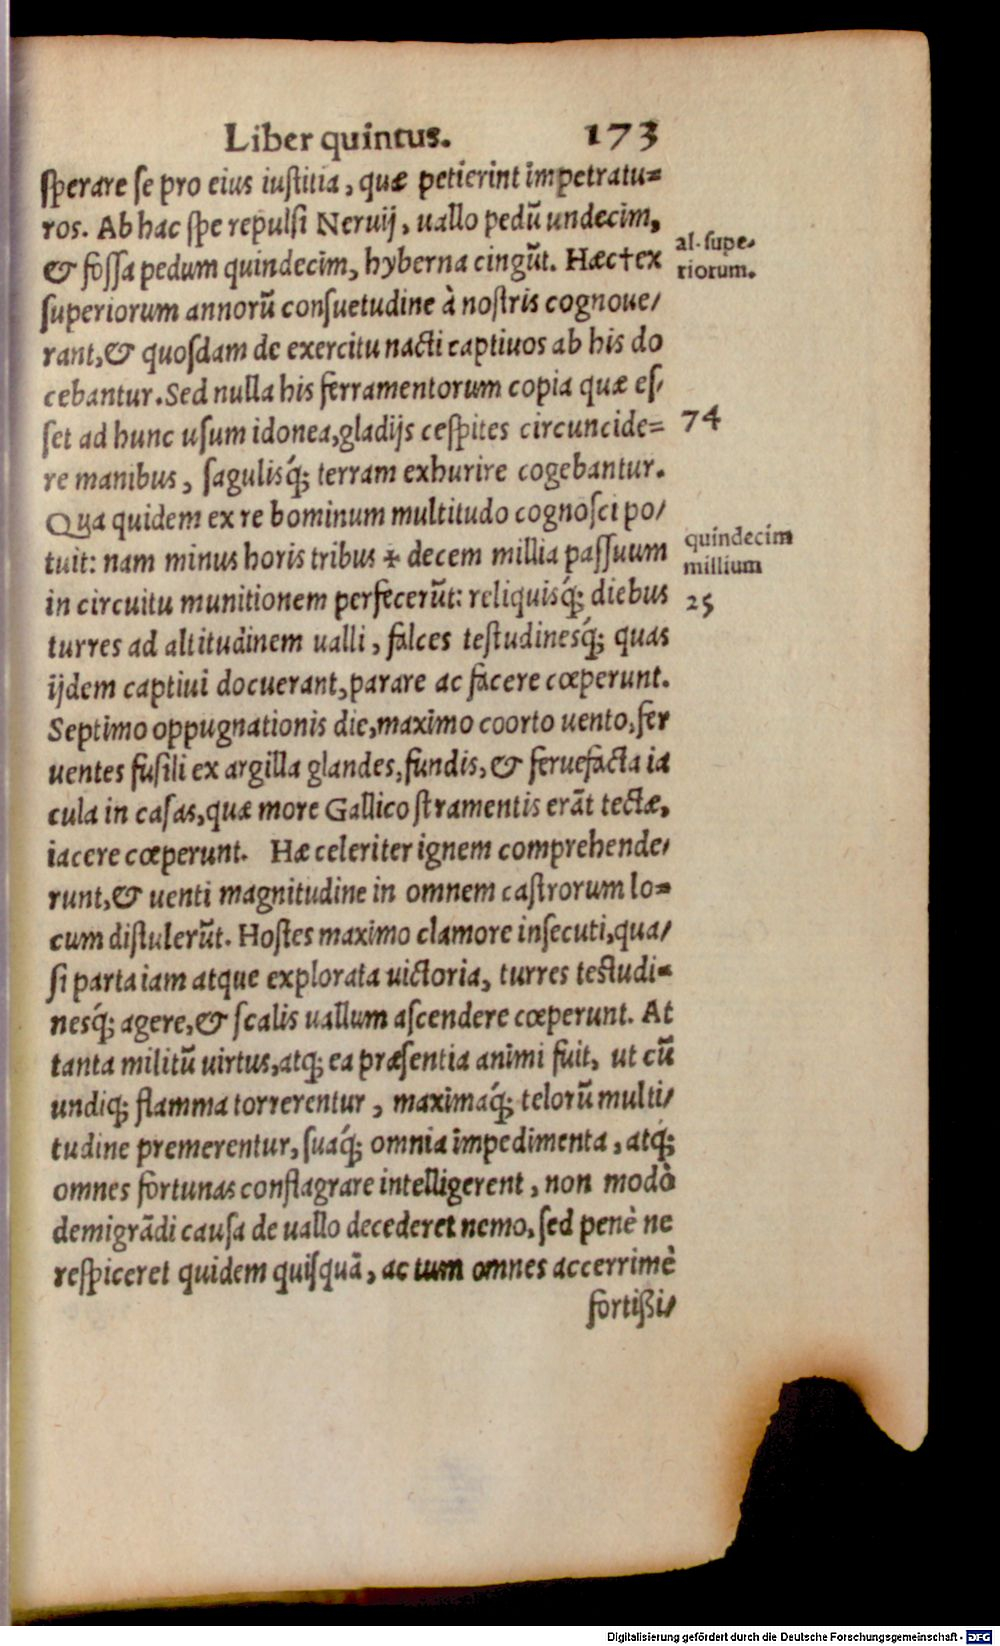 Liber quintus. 173
ſperare ſe pro eius iuſtitia, quæ petierint impetratu=
ros. Ab hac ſpe repulſi Neruij, uallo pedū undecim,
& foſſa pedum quindecim, hyberna cingūt. Hæc † ex
al. ſupe-
riorum.
ſuperiorum annorū conſuetudine à noſtris cognoue/
rant, & quoſdam de exercitu nacti captiuos ab his do
cebantur. Sed nulla his ferramentorum copia quæ eſ/
ſet ad hunc uſum idonea, gladijs ceſpites circuncide=
74
re manibus, ſagulisq́; terram exhurire cogebantur.
Qua quidem ex re hominum multitudo cognoſci po/
tuit: nam minus horis tribus ✢ decem millia paſſuum
quindecim
millium
in circuitu munitionem perfecerūt: reliquisq́; diebus
25
turres ad altitudinem ualli, falces teſtudinesq́; quas
ijdem captiui docuerant, parare ac facere cœperunt.
Septimo oppugnationis die, maximo coorto uento, fer
uentes fuſili ex argilla glandes, fundis, & feruefacta ia
cula in caſas, quæ more Gallico ſtramentis erāt tectæ,
iacere cœperunt. Hæ celeriter ignem comprehende/
runt, & uenti magnitudine in omnem caſtrorum lo=
cum diſtulerūt. Hoſtes maximo clamore inſecuti, qua/
ſi parta iam atque explorata uictoria, turres teſtudi=
nesq́; agere, & ſcalis uallum aſcendere cœperunt. At
tanta militū uirtus, atq; ea præſentia animi fuit, ut cū
undiq; flamma torrerentur, maximaq́; telorū multi/
tudine premerentur, ſuaq́; omnia impedimenta, atq́;
omnes fortunas conflagrare intelligerent, non modò
demigrādi cauſa de uallo decederet nemo, ſed penè ne
reſpiceret quidem quiſquā, ac tum omnes accerrimè
fortißi/
Digitalisierung gefördert durch die Deutsche Forschungsgemeinschaft - DFG